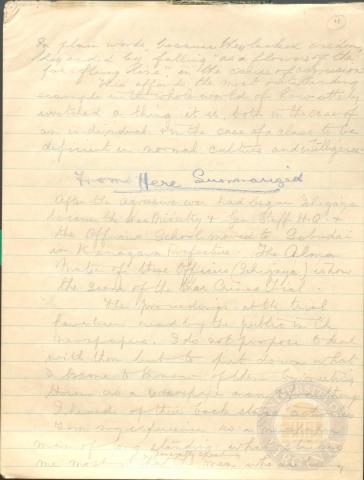 4
In plain words, because they lacked wisdom
they ended by falling "as a flower of the
far-flung Hero" in the cause of aggression.
This affords the most outstanding
example in the whole world of how utterly
wretched a thing it is, both in the case of
an individual & in the case of a class to be
deficient in normal culture and intelligence.
From Here Summarized
After the aggressive war had begun Ichigaya
became the War Ministry & Gen Staff H.Q. &
the Officers School moved to
in Kanagawa Prefecture. The Alma
Mater of these Officers (Ichigaya) is now
the Scene of the War Crimes Trial.
The proceedings at the trial
have been read by the public in the
newspapers. I do not propose to deal
with them but to put down what
I came to know of them by meeting
them as a newspaper man &
I heard of their back stage
From my experience as a
man of long standing what
me most is the men who